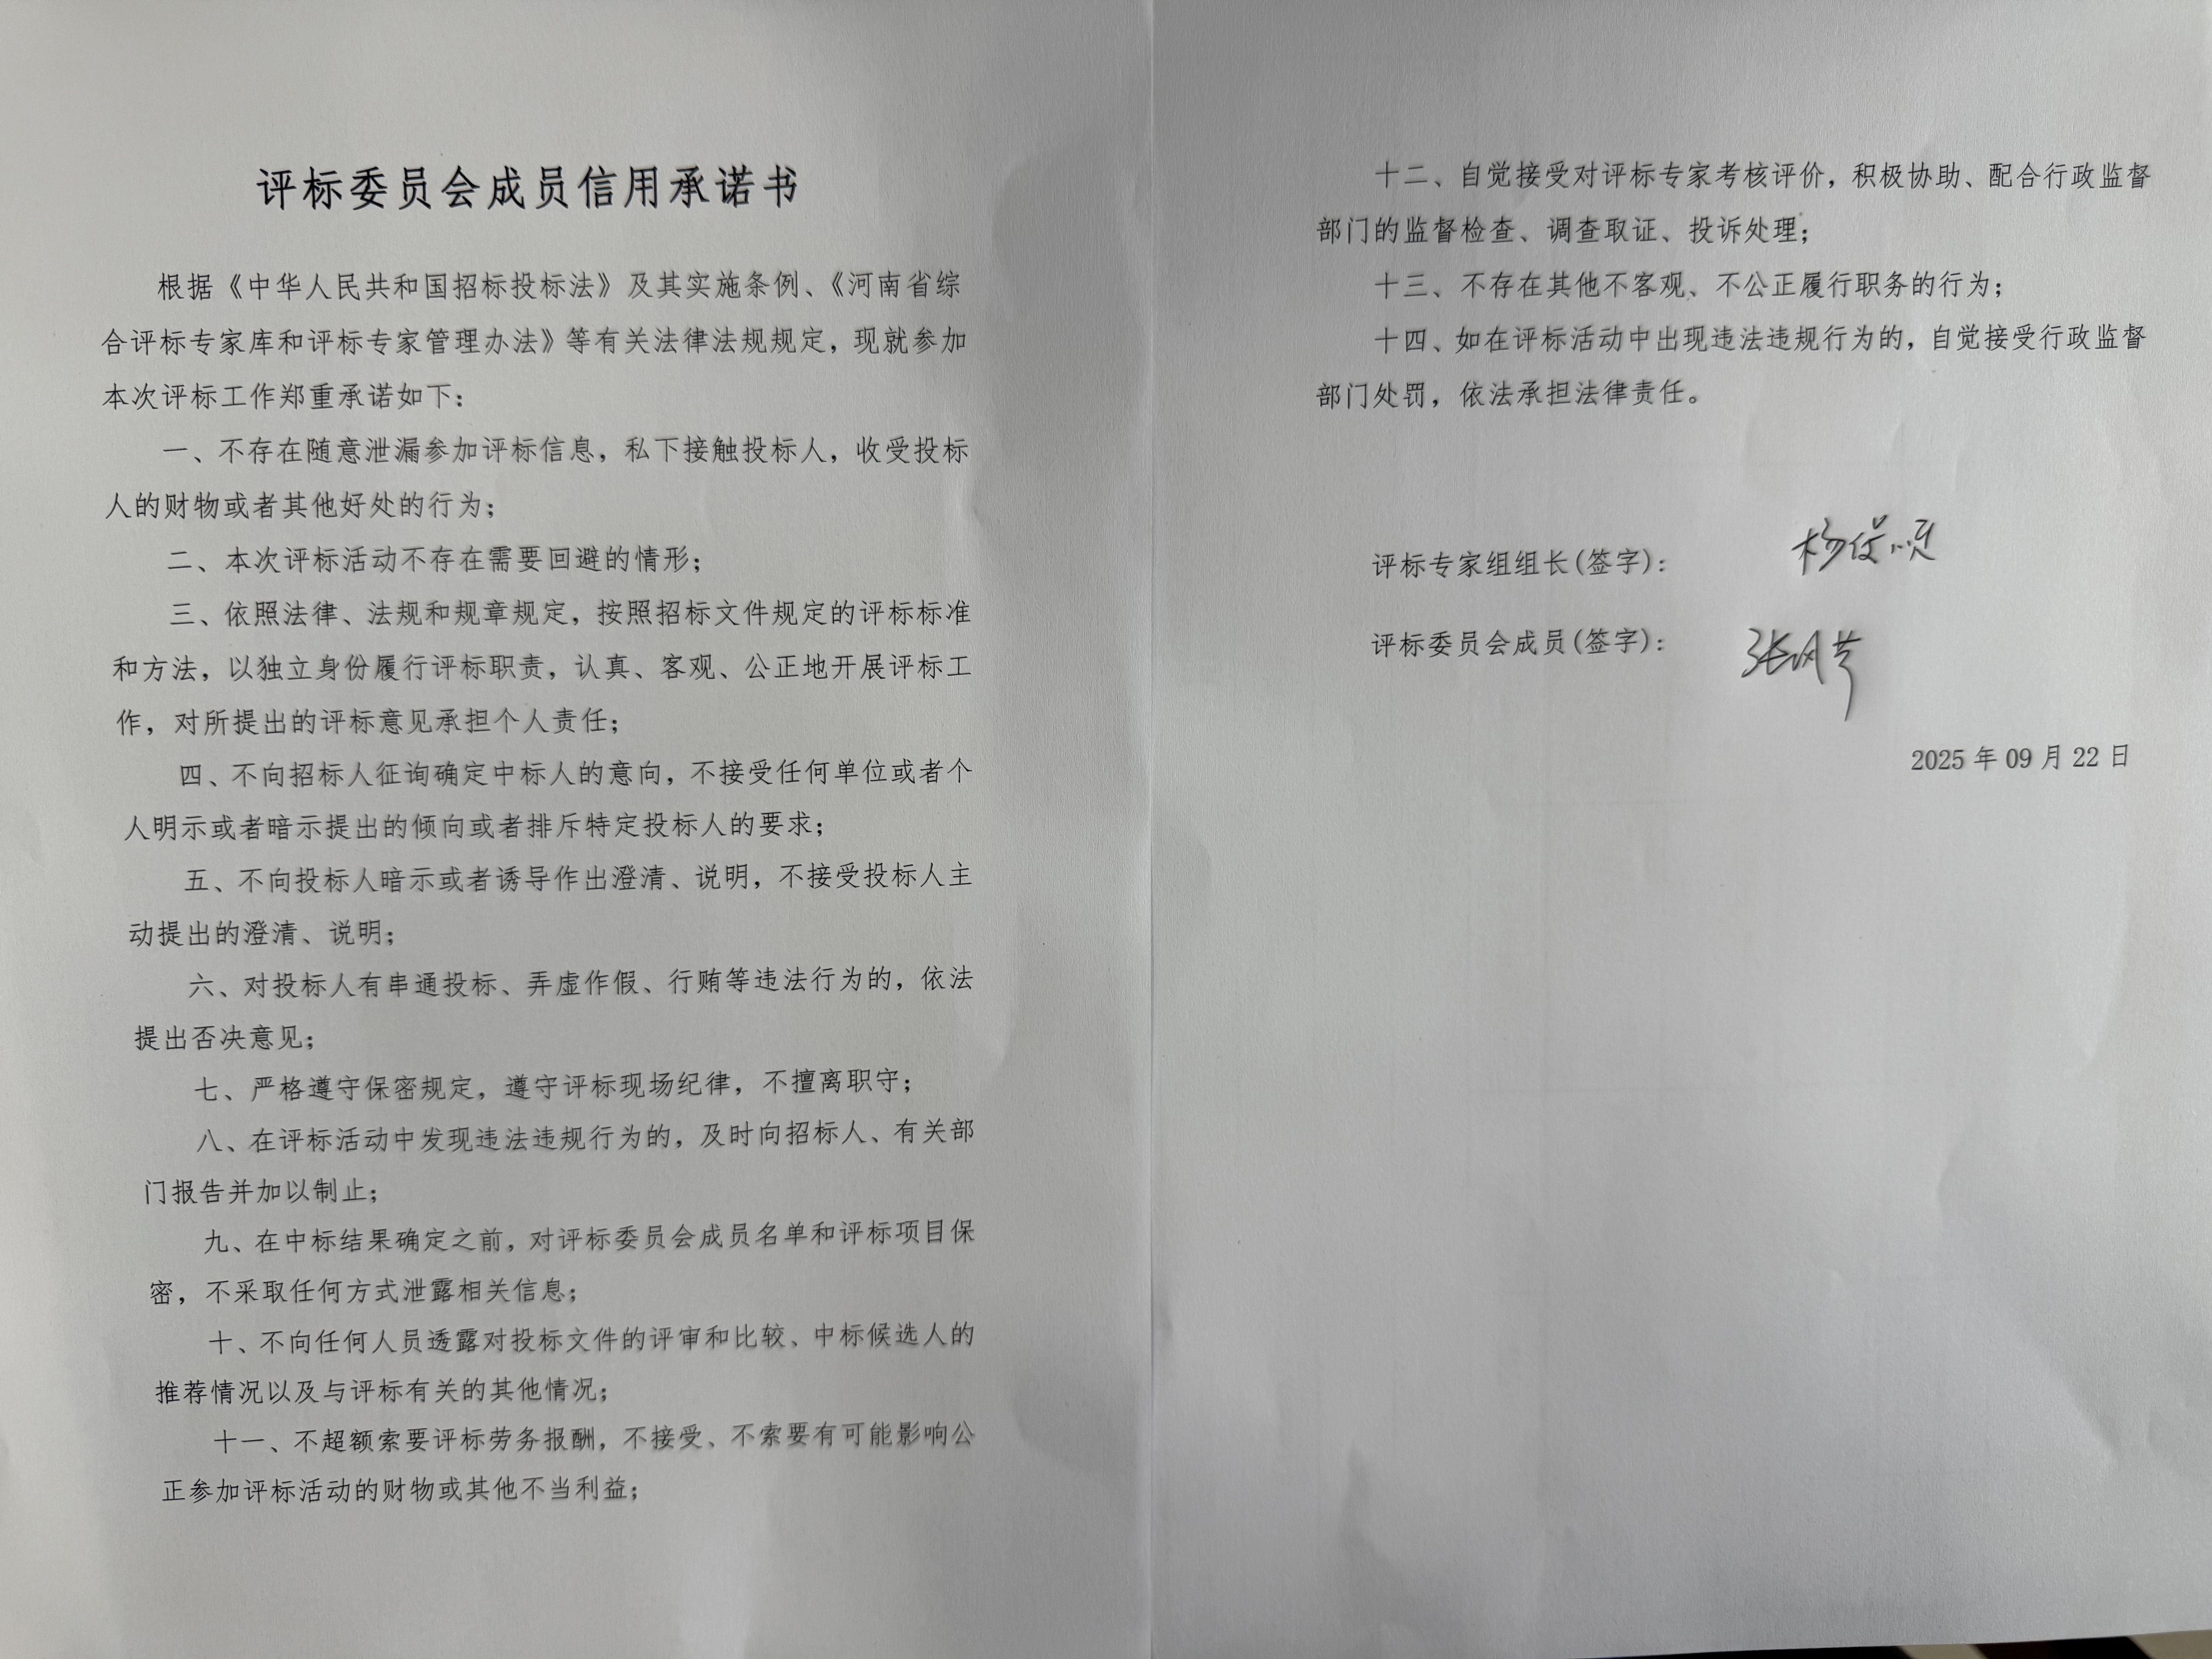 评标委员会成员信用承诺书
根据《中华人民共和国招标投标法》及其实施条例、《河南省综
合评标专家库和评标专家管理办法》等有关法律法规规定，现就参加
本次评标工作郑重承诺如下：
一、不存在随意泄漏参加评标信息，私下接触投标人，收受投标
人的财物或者其他好处的行为；
二、本次评标活动不存在需要回避的情形；
三、依照法律、法规和规章规定，按照招标文件规定的评标标准
和方法，以独立身份履行评标职责，认真、客观、公正地开展评标工
作，对所提出的评标意见承担个人责任；
四、不向招标人征询确定中标人的意向，不接受任何单位或者个
人明示或者暗示提出的倾向或者排斥特定投标人的要求；
五、不向投标人暗示或者诱导作出澄清、说明，不接受投标人主
动提出的澄清、说明；
六、对投标人有串通投标、弄虚作假、行贿等违法行为的，依法
提出否决意见；
七、严格遵守保密规定，遵守评标现场纪律，不擅离职守；
八、在评标活动中发现违法违规行为的，及时向招标人、有关部
门报告并加以制止；
九、在中标结果确定之前，对评标委员会成员名单和评标项目保
密，不采取任何方式泄露相关信息；
十、不向任何人员透露对投标文件的评审和比较、中标候选人的
推荐情况以及与评标有关的其他情况；
十一、不超额索要评标劳务报酬，不接受、不索要有可能影响公
正参加评标活动的财物或其他不当利益；
十二、自觉接受对评标专家考核评价，积极协助、配合行政监督
部门的监督检查、调查取证、投诉处理；
十三、不存在其他不客观、不公正履行职务的行为；
十四、如在评标活动中出现违法违规行为的，自觉接受行政监督
部门处罚，依法承担法律责任。
评标专家组组长(签字)：
评标委员会成员(签字)：
2025 年 09 月 22 日